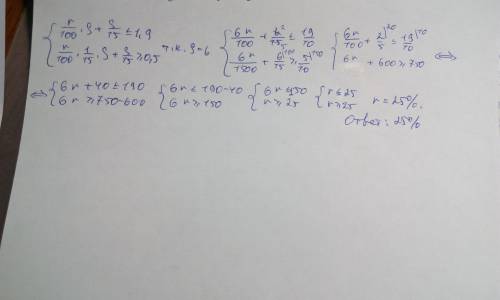 { r/100 · S + S/15 ≤ 1,9
{ r/100 · 1/15 · S + S/15 ≥ 0,5 т.к. S=6
{ 6r/100 + 6²/15₅ ≤ 19/10
{ 6r/1500 + 6/15 ≥ 5/10
{ 6r/100 + 2/5 ≤ 19/10
{ 6r + 600 ≥ 750 ⇔
⇔ { 6r + 40 ≤ 190
{ 6r ≥ 750-600
{ 6r ≤ 190-40
{ 6r ≥ 150
{ 6r ≤ 150
{ r ≥ 25
{ r ≤ 25
{ r ≥ 25 r = 25%.
Ответ: 25%